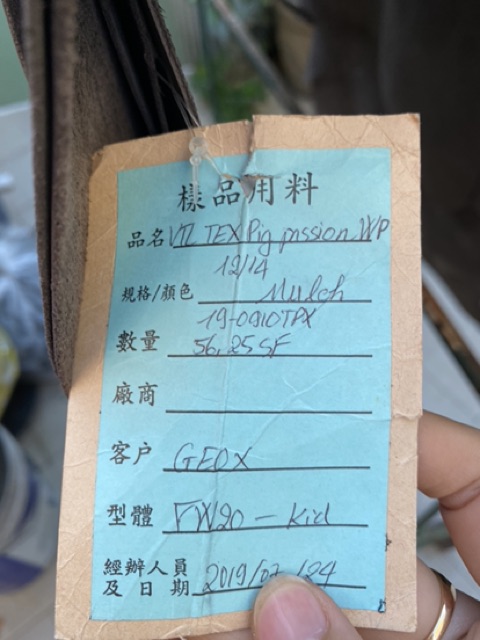 樣品用料
品名 VTL TEX Pig passion WP
12/14
規格/顏色 Mulch
19-0910TPX
數量 56,25 SF
廠商
客户 GEOX
型體 FW20 - Kid
經辦人員
及日期 2019/07/24